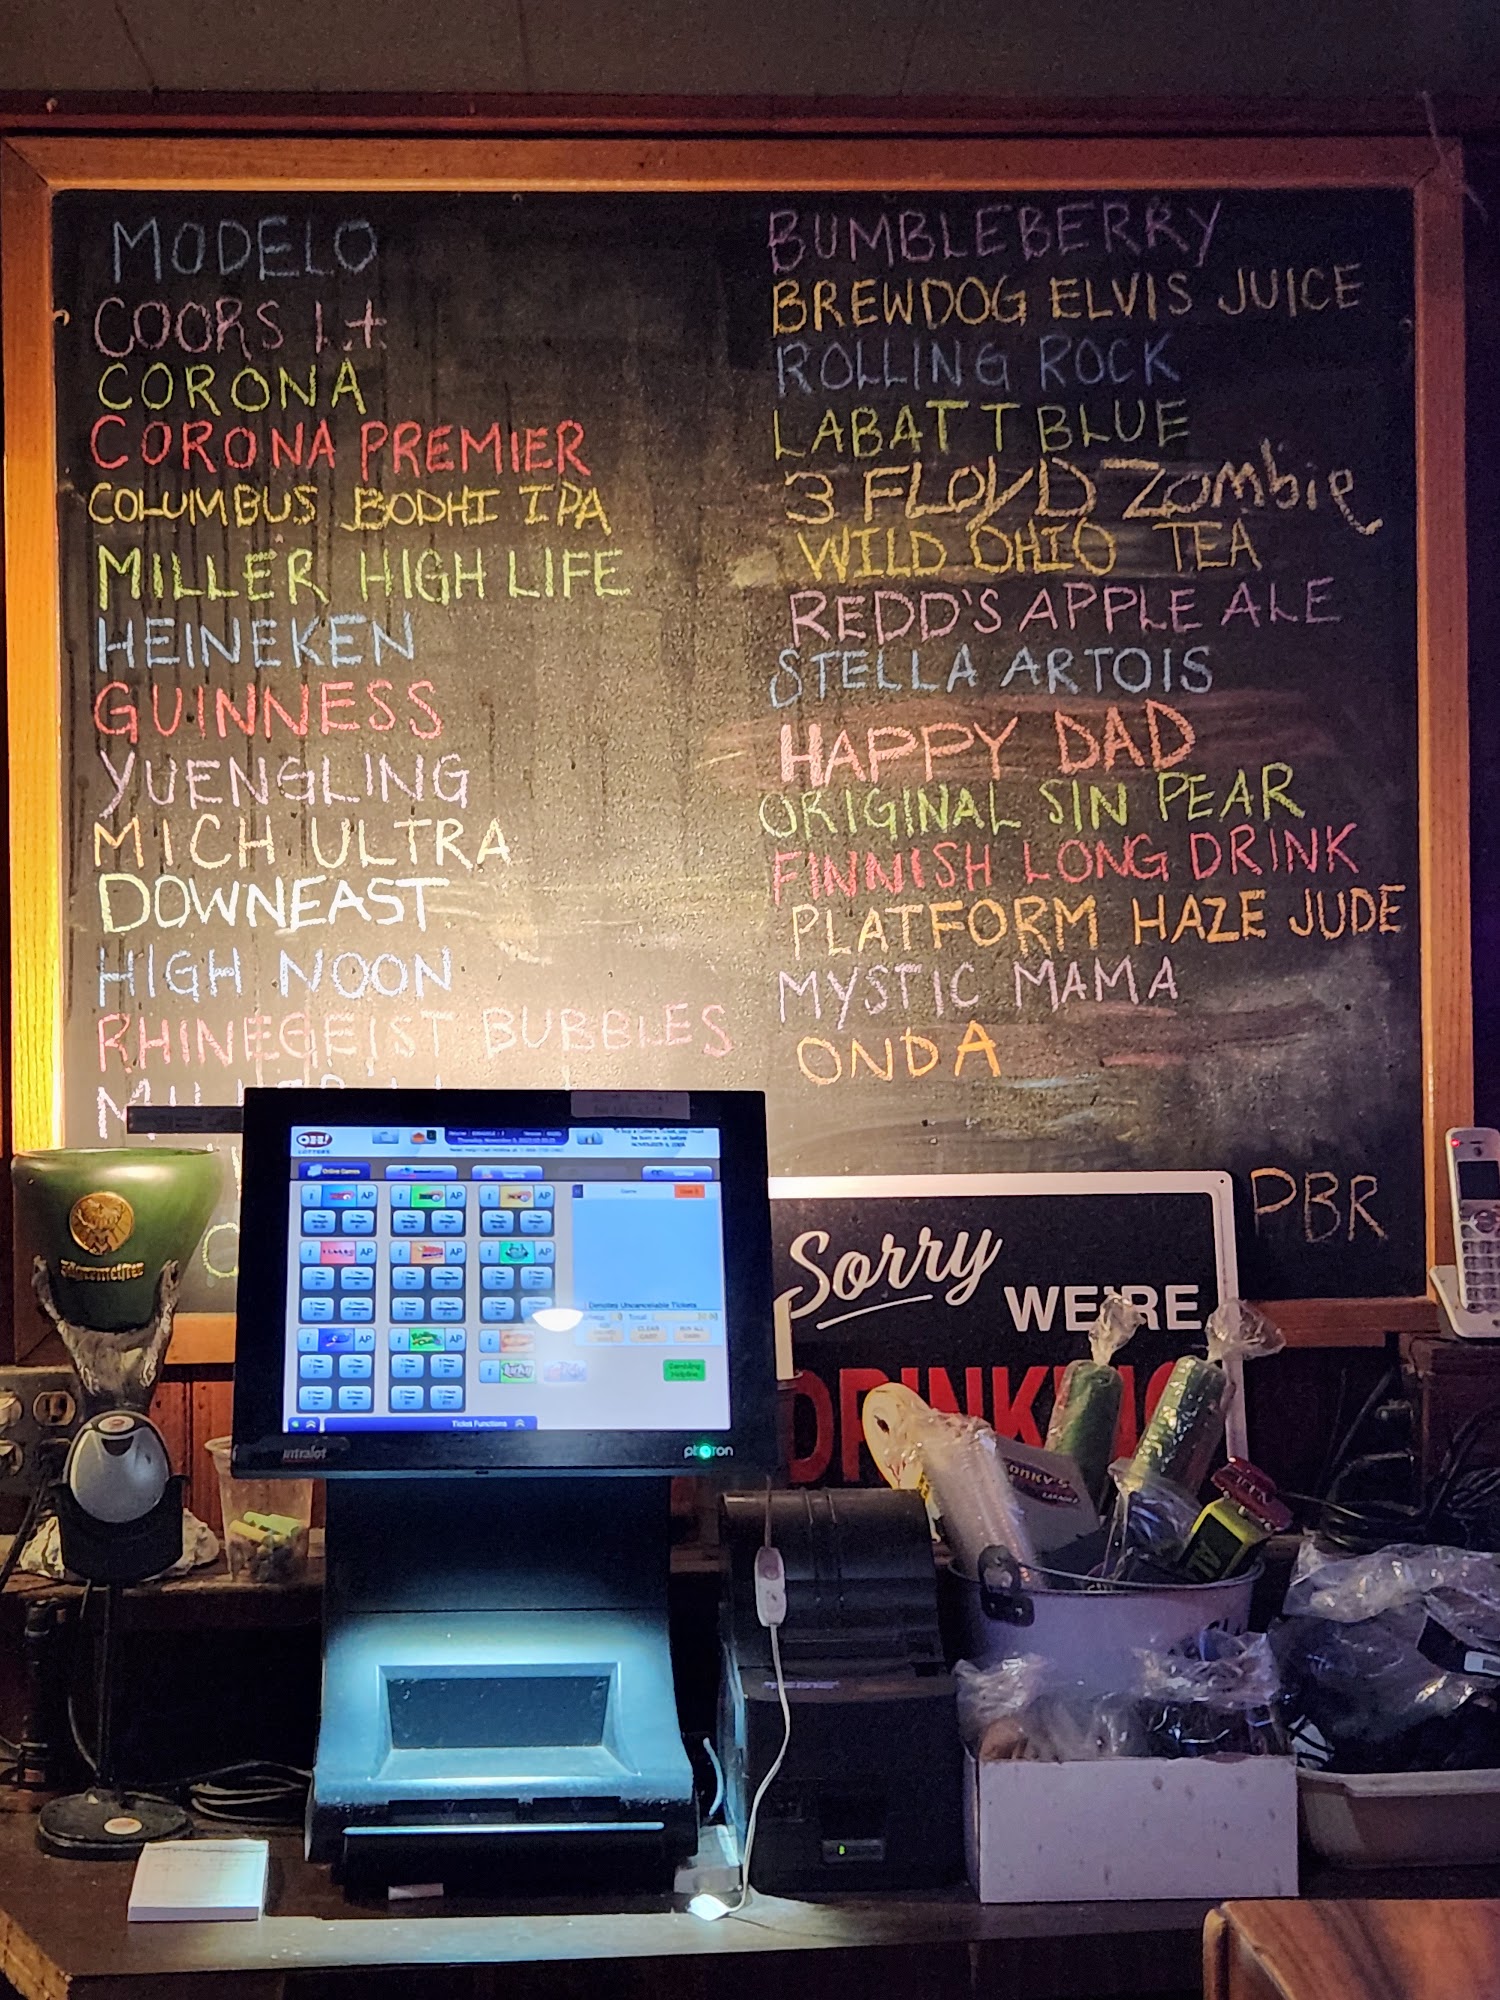 MODELO
COORS Lt
CORONA
CORONA PREMIER
COLUMBUS BODHI IPA
MILLER HIGH LIFE
HEINEKEN
GUINNESS
YUENGLING
MICH ULTRA
DOWNEAST
HIGH NOON
RHINEGEIST BUBBLES
BUMBLEBERRY
BREWDOG ELVIS JUICE
ROLLING ROCK
LABATT BLUE
3 FLOYD ZOmbie
WILD OHIO TEA
REDD'S APPLE ALE
STELLA ARTOIS
HAPPY DAD
ORIGINAL SIN PEAR
FINNISH LONG DRINK
PLATFORM HAZE JUDE
MYSTIC MAMA
ONDA
PBR
Sorry
WE'RE
DRINKING
Jägermeister
OH!
LOTTERY
Online Games
AP AP AP
AP AP AP
AP AP
Denotes Uncancelable Tickets
Total
Gambling
Helpline
Ticket Functions
intralot
photon